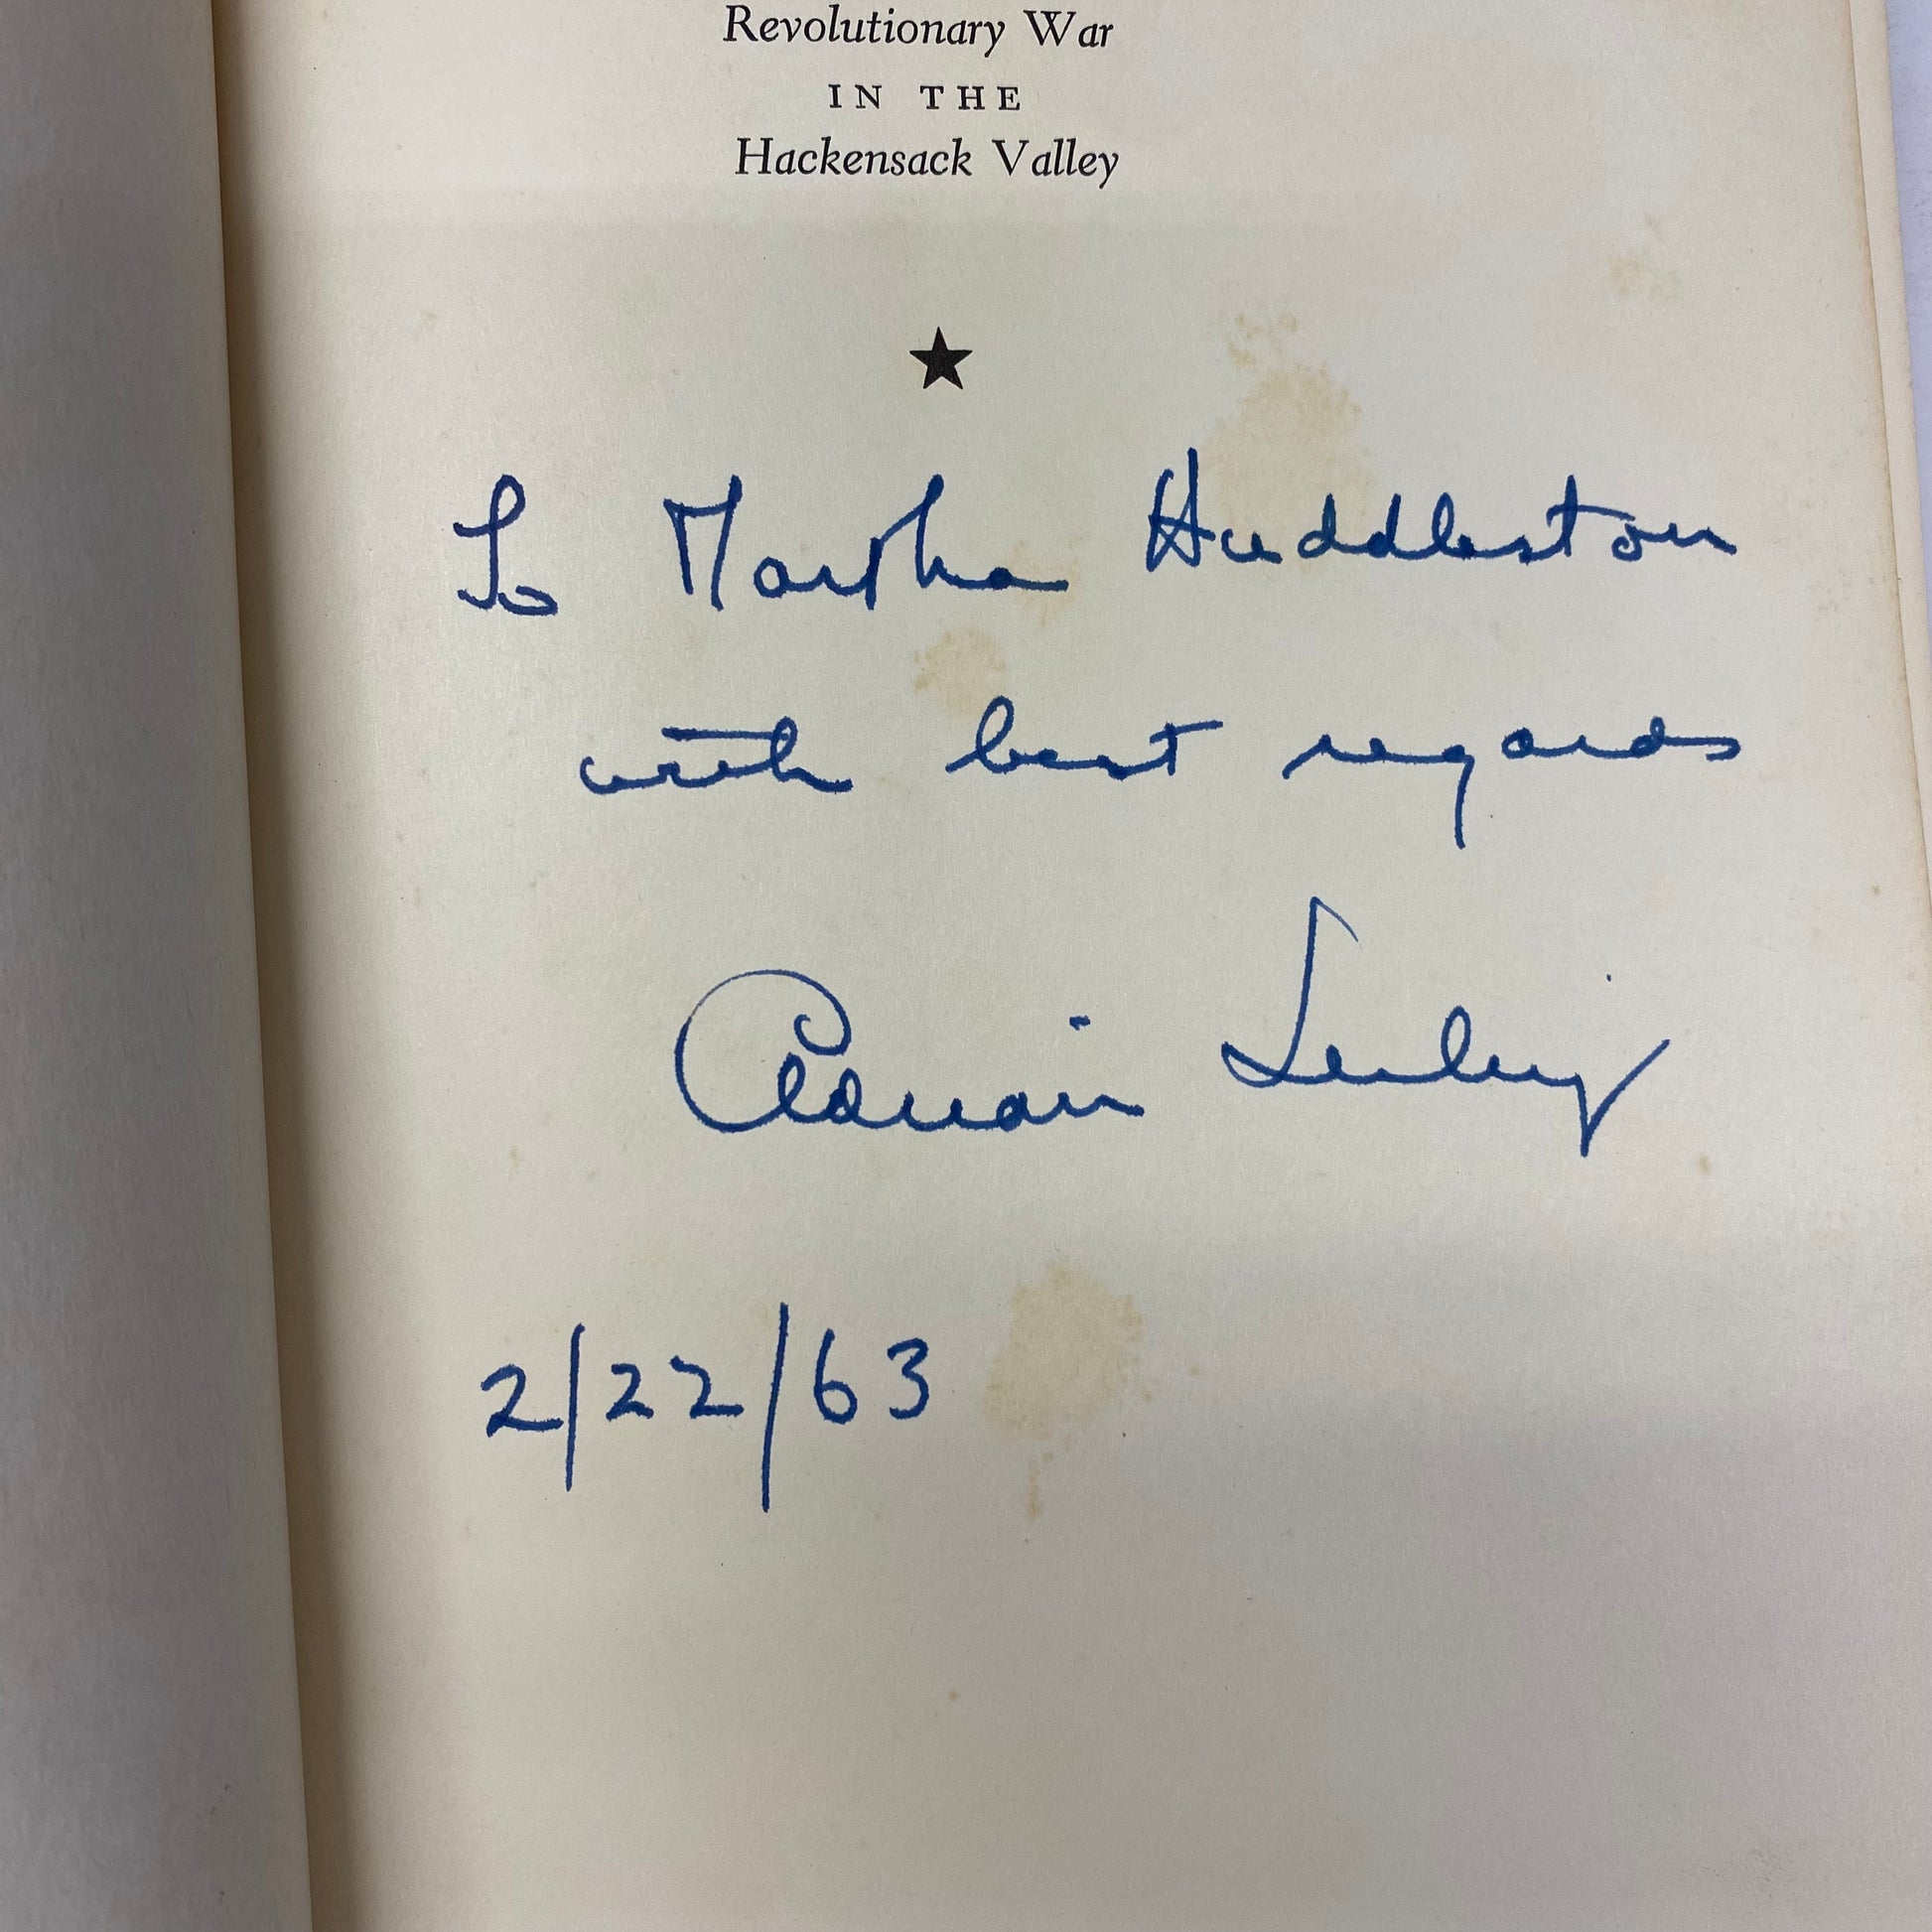 Revolutionary War
IN THE
Hackensack Valley
To Martha Huddleston
with best regards
Adrian Leiby
2/22/63